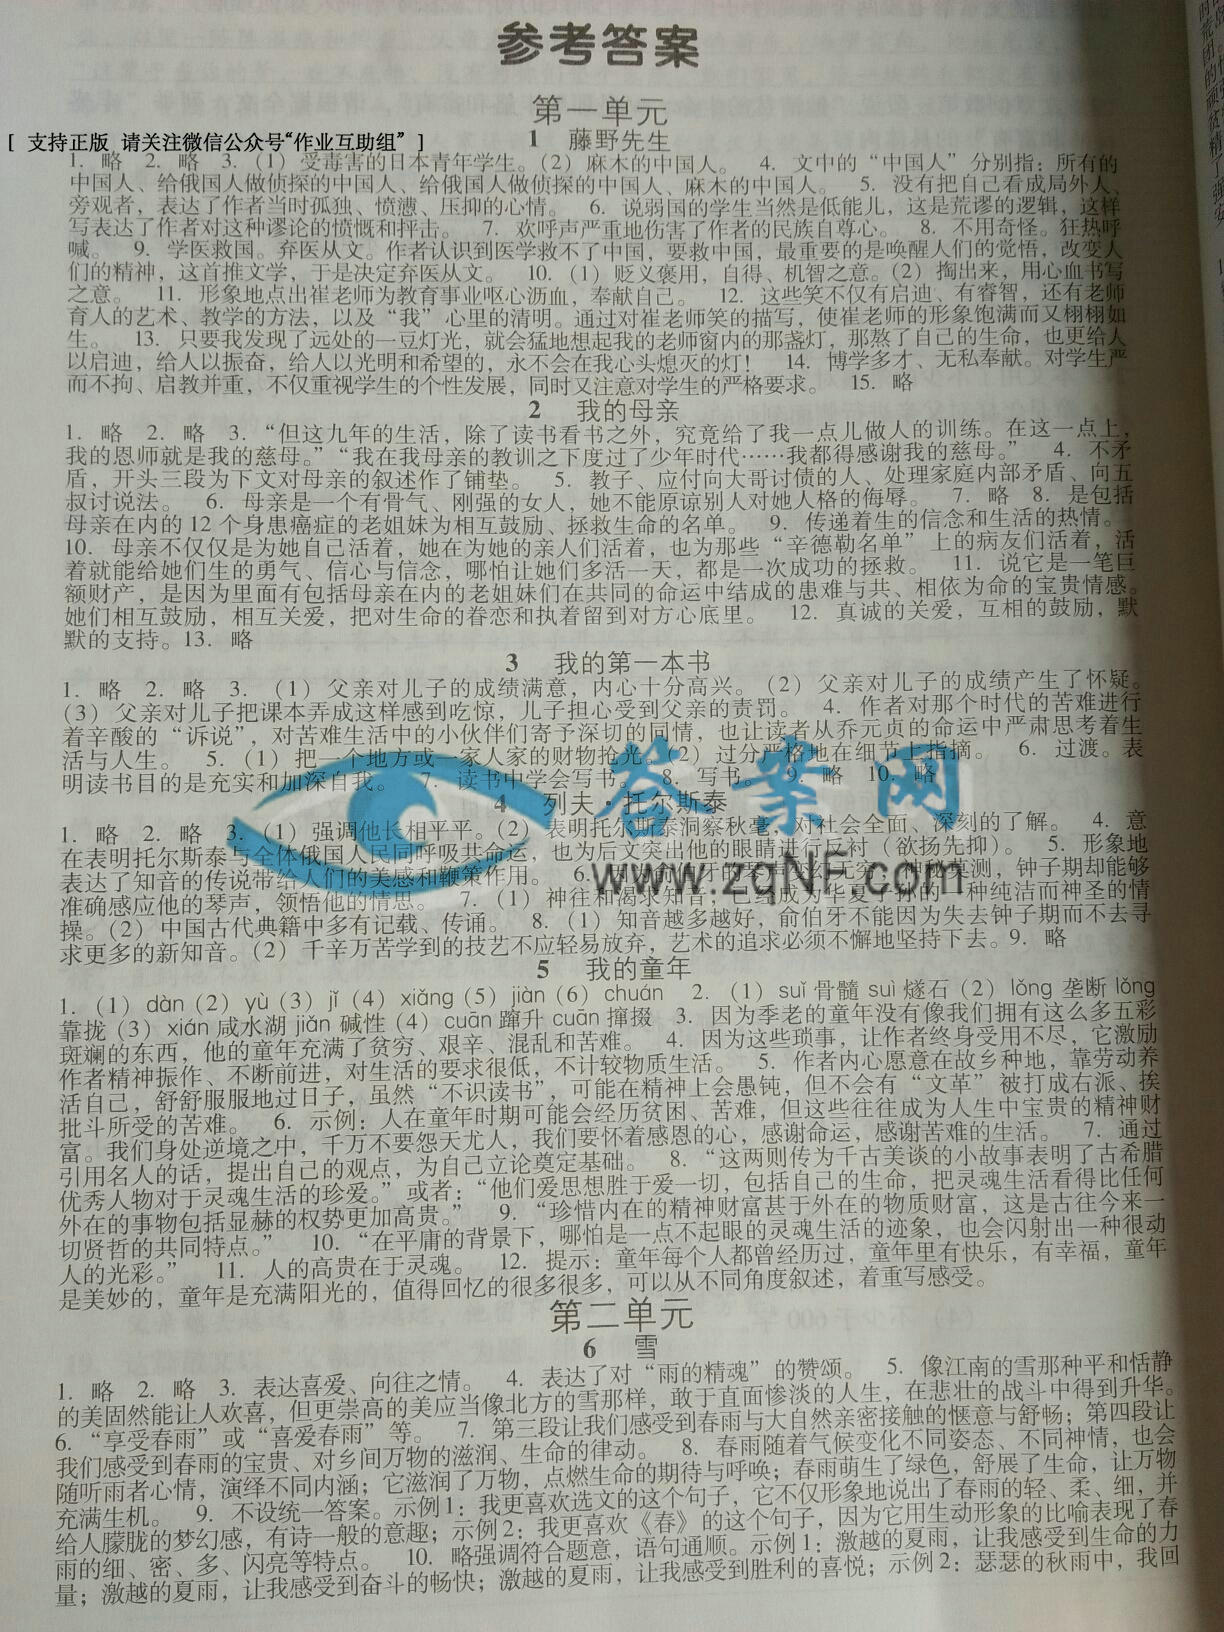 参考答案
第一单元
[ 支持正版 请关注微信公众号“作业互助组” ]
1 藤野先生
1. 略 2. 略 3. (1) 受毒害的日本青年学生。(2) 麻木的中国人。 4. 文中的“中国人”分别指：所有的
中国人、给俄国人做侦探的中国人、给俄国人做侦探的中国人、麻木的中国人。 5. 没有把自己看成局外人、
旁观者，表达了作者当时孤独、愤懑、压抑的心情。 6. 说弱国的学生当然是低能儿，这是荒谬的逻辑，这样
写表达了作者对这种谬论的愤慨和抨击。 7. 欢呼声严重地伤害了作者的民族自尊心。 8. 不用奇怪。狂热呼
喊。 9. 学医救国。弃医从文。作者认识到医学救不了中国，要救中国，最重要的是唤醒人们的觉悟，改变人
们的精神，这首推文学，于是决定弃医从文。 10. (1) 贬义褒用，自得、机智之意。(2) 掏出来，用心血书写
之意。 11. 形象地点出崔老师为教育事业呕心沥血，奉献自己。 12. 这些笑不仅有启迪、有睿智，还有老师
育人的艺术、教学的方法，以及“我”心里的清明。通过对崔老师笑的描写，使崔老师的形象饱满而又栩栩如
生。 13. 只要我发现了远处的一豆灯光，就会猛地想起我的老师窗内的那盏灯，那熬了自己的生命，也更给人
以启迪，给人以振奋，给人以光明和希望的，永不会在我心头熄灭的灯！ 14. 博学多才、无私奉献。对学生严
而不拘、启教并重，不仅重视学生的个性发展，同时又注意对学生的严格要求。 15. 略
2 我的母亲
1. 略 2. 略 3. “但这九年的生活，除了读书看书之外，究竟给了我一点儿做人的训练。在这一点上，
我的恩师就是我的慈母。”“我在我母亲的教训之下度过了少年时代……我都得感谢我的慈母。” 4. 不矛
盾，开头三段为下文对母亲的叙述作了铺垫。 5. 教子、应付向大哥讨债的人、处理家庭内部矛盾、向五
叔讨说法。 6. 母亲是一个有骨气、刚强的女人，她不能原谅别人对她人格的侮辱。 7. 略 8. 是包括
母亲在内的 12 个身患癌症的老姐妹为相互鼓励、拯救生命的名单。 9. 传递着生的信念和生活的热情。
10. 母亲不仅仅是为她自己活着，她在为她的亲人们活着，也为那些“辛德勒名单”上的病友们活着，活
着就能给她们生的勇气、信心与信念，哪怕让她们多活一天，都是一次成功的拯救。 11. 说它是一笔巨
额财产，是因为里面有包括母亲在内的老姐妹们在共同的命运中结成的患难与共、相依为命的宝贵情感。
她们相互鼓励，相互关爱，把对生命的眷恋和执着留到对方心底里。 12. 真诚的关爱，互相的鼓励，默
默的支持。13. 略
3 我的第一本书
1. 略 2. 略 3. (1) 父亲对儿子的成绩满意，内心十分高兴。(2) 父亲对儿子的成绩产生了怀疑。
(3) 父亲对儿子把课本弄成这样感到吃惊，儿子担心受到父亲的责罚。 4. 作者对那个时代的苦难进行
着辛酸的“诉说”，对苦难生活中的小伙伴们寄予深切的同情，也让读者从乔元贞的命运中严肃思考着生
活与人生。 5. (1) 把一个地方或一家人家的财物抢光。(2) 过分严格地在细节上指摘。 6. 过渡。表
明读书目的是充实和加深自我。 7. 读书中学会写书。 8. 写书。 9. 略 10. 略
答案网
4 列夫·托尔斯泰
1. 略 2. 略 3. (1) 强调他长相平平。(2) 表明托尔斯泰洞察秋毫，对社会全面、深刻的了解。 4. 意
在表明托尔斯泰与全体俄国人民同呼吸共命运，也为后文突出他的眼睛进行反衬（欲扬先抑）。 5. 形象地
表达了知音的传说带给人们的美感和鞭策作用。 6. 神秘莫测，钟子期却能够
www.zqNF.com
准确感应他的琴声，领悟他的情思。 7. (1) 神往和渴求知音，已经成为华夏子孙的一种纯洁而神圣的情
操。(2) 中国古代典籍中多有记载、传诵。 8. (1) 知音越多越好，俞伯牙不能因为失去钟子期而不去寻
求更多的新知音。(2) 千辛万苦学到的技艺不应轻易放弃，艺术的追求必须不懈地坚持下去。9. 略
5 我的童年
1. (1) dàn (2) yù (3) jǐ (4) xiǎng (5) jiàn (6) chuán 2. (1) suǐ 骨髓 suì 燧石 (2) lǒng 垄断 lǒng
靠拢 (3) xián 咸水湖 jiǎn 碱性 (4) cuān 蹿升 cuān 撺掇 3. 因为季老的童年没有像我们拥有这么多五彩
斑斓的东西，他的童年充满了贫穷、艰辛、混乱和苦难。 4. 因为这些琐事，让作者终身受用不尽，它激励
作者精神振作、不断前进，对生活的要求很低，不计较物质生活。 5. 作者内心愿意在故乡种地，靠劳动养
活自己，舒舒服服地过日子，虽然“不识读书”，可能在精神上会愚钝，但不会有“文革”被打成右派、挨
批斗所受的苦难。 6. 示例：人在童年时期可能会经历贫困、苦难，但这些往往成为人生中宝贵的精神财
富。我们身处逆境之中，千万不要怨天尤人，我们要怀着感恩的心，感谢命运，感谢苦难的生活。 7. 通过
引用名人的话，提出自己的观点，为自己立论奠定基础。 8. “这两则传为千古美谈的小故事表明了古希腊
优秀人物对于灵魂生活的珍爱。”或者：“他们爱思想胜于爱一切，包括自己的生命，把灵魂生活看得比任何
外在的事物包括显赫的权势更加高贵。” 9. “珍惜内在的精神财富甚于外在的物质财富，这是古往今来一
切贤哲的共同特点。” 10. “在平庸的背景下，哪怕是一点不起眼的灵魂生活的迹象，也会闪射出一种很动
人的光彩。” 11. 人的高贵在于灵魂。 12. 提示：童年每个人都曾经历过，童年里有快乐，有幸福，童年
是美妙的，童年是充满阳光的，值得回忆的很多很多，可以从不同角度叙述，着重写感受。
第二单元
6 雪
1. 略 2. 略 3. 表达喜爱、向往之情。 4. 表达了对“雨的精魂”的赞颂。 5. 像江南的雪那种平和恬静
的美固然能让人欢喜，但更崇高的美应当像北方的雪那样，敢于直面惨淡的人生，在悲壮的战斗中得到升华。
6. “享受春雨”或“喜爱春雨”等。 7. 第三段让我们感受到春雨与大自然亲密接触的惬意与舒畅；第四段让
我们感受到春雨的宝贵、对乡间万物的滋润、生命的律动。 8. 春雨随着气候变化不同姿态、不同神情，也会
随听雨者心情，演绎不同内涵；它滋润了万物，点燃生命的期待与呼唤；春雨萌生了绿色，舒展了生命，让万物
充满生机。 9. 不设统一答案。示例 1：我更喜欢选文的这个句子，它不仅形象地说出了春雨的轻、柔、细，并
给人朦胧的梦幻感，有诗一般的意趣；示例 2：我更喜欢《春》的这个句子，因为它用生动形象的比喻表现了春
雨的细、密、多、闪亮等特点。 10. 略强调符合题意，语句通顺。示例 1：激越的夏雨，让我感受到生命的力
量；激越的夏雨，让我感受到奋斗的畅快；激越的夏雨，让我感受到胜利的喜悦；示例 2：瑟瑟的秋雨中，我回